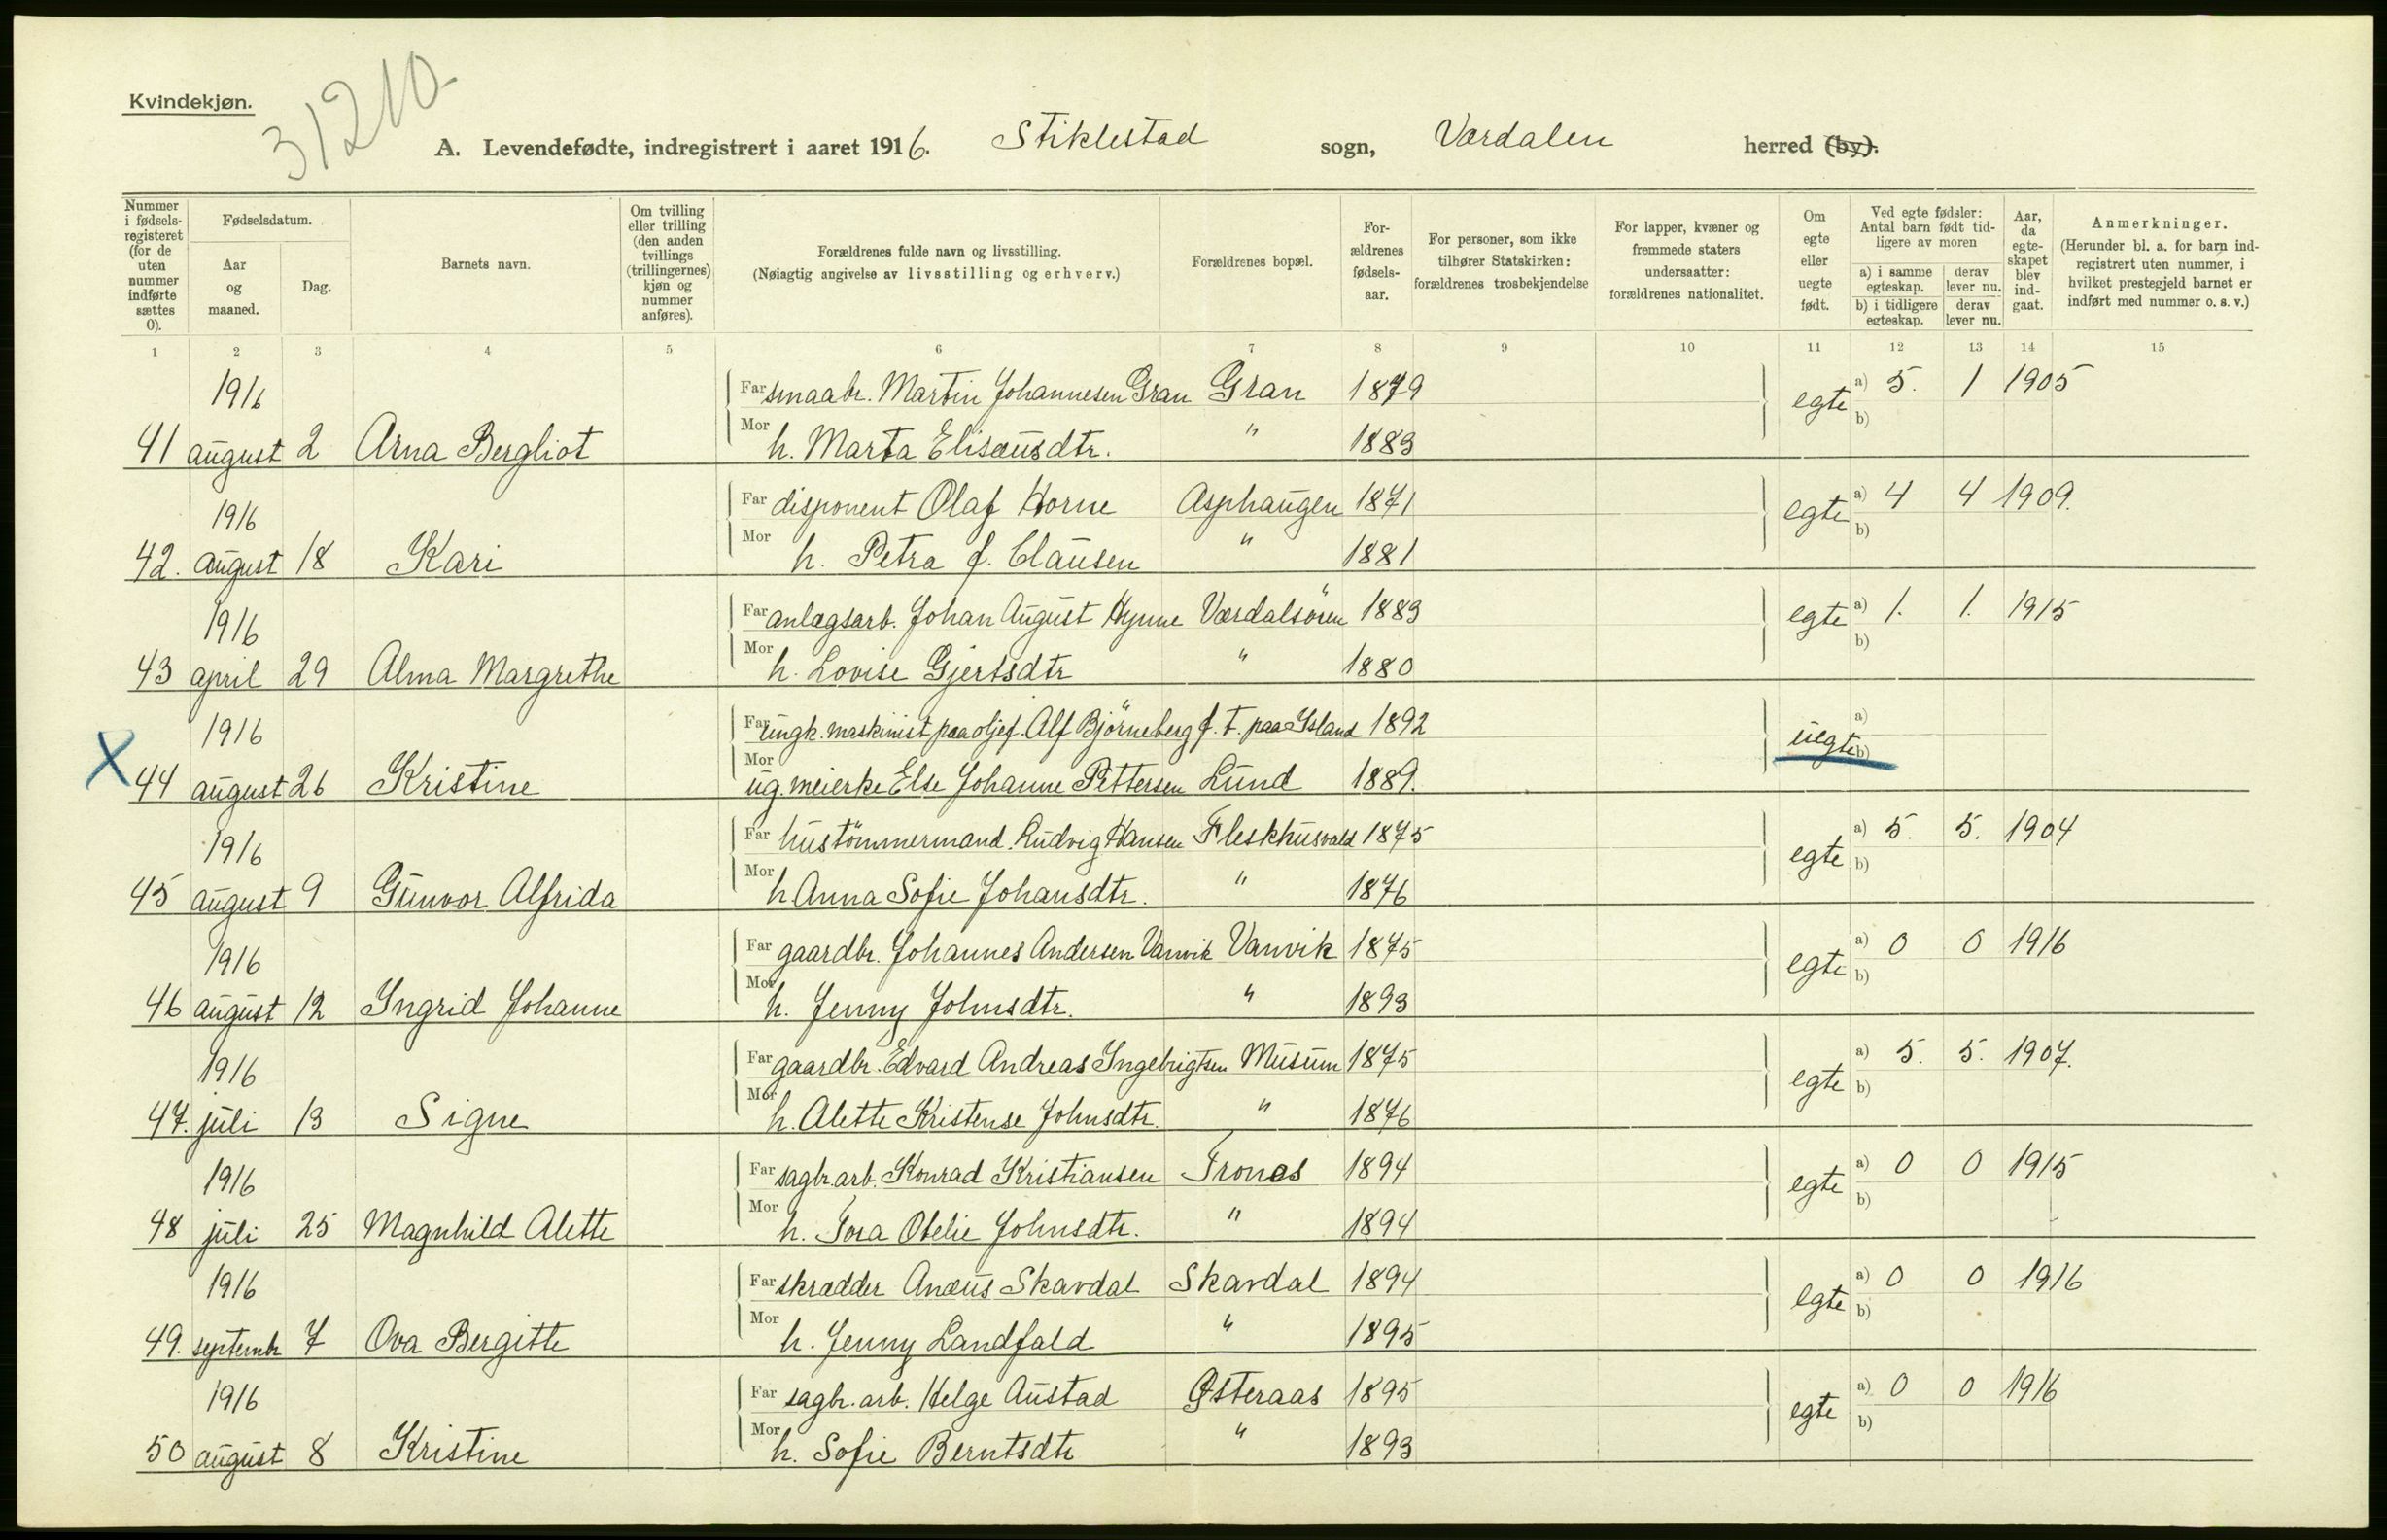 Kvindekjøn.
31210
A. Levendefødte, indregistrert i aaret 1916. Stiklestad sogn, Værdalen herred (by).
Nummer i fødsels-registeret (for de uten nummer indførte sættes 0).
Fødselsdatum.
Aar og maaned.
Dag.
Barnets navn.
Om tvilling eller trilling (den anden tvillings (trillingernes) kjøn og nummer anføres).
Forældrenes fulde navn og livsstilling.
(Nøiagtig angivelse av livsstilling og erhverv.)
Forældrenes bopæl.
For-ældrenes fødsels-aar.
For personer, som ikke tilhører Statskirken: forældrenes trosbekjendelse
For lapper, kvæner og fremmede staters undersaatter: forældrenes nationalitet.
Om egte eller uegte født.
Ved egte fødsler: Antal barn født tid-ligere av moren
a) i samme egteskap.
derav lever nu.
b) i tidligere egteskap.
derav lever nu.
Aar, da egte-skapet blev ind-gaat.
Anmerkninger.
(Herunder bl. a. for barn ind-registrert uten nummer, i hvilket prestegjeld barnet er indført med nummer o. s. v.)
1 2 3 4 5 6 7 8 9 10 11 12 13 14 15
1916 Far smaabr. Martin Johannesen Gran Gran 1879 egte a) 5. 1 1905
41 august 2 Arna Bergliot Mor h. Marta Elisæusdtr. " 1883 b)
1916 Far disponent Olaf Horne Asphaugen 1871 egte a) 4 4 1909.
42. august 18 Kari Mor h. Petra f. Clausen " 1881 b)
1916 Far anlægsarb. Johan August Hynne Værdalsören 1883 egte a) 1. 1. 1915
43 april 29 Alma Margrethe Mor h. Lovise Gjertsdtr " 1880 b)
1916 Far ungk. maskinist paa oljef. Alf Björneberg f. t. paa Island 1892 uegte a)
X 44 august 26 Kristine Mor ug. meierke Else Johanne Pettersen Lund 1889. b)
1916 Far hustömmermand. Ludvig Hansen Fleskhusvald 1875 egte a) 5. 5. 1904
45 august 9 Gunvor Alfrida Mor h Anna Sofie Johansdtr. " 1876 b)
1916 Far gaardbr. Johannes Andersen Vanvik Vanvik 1875 egte a) 0 0 1916
46 august 12 Ingrid Johanne Mor h. Jenny Johnsdtr. " 1893 b)
1916 Far gaardbr. Edvard Andreas Ingebrigtsen Musum 1875 egte a) 5. 5. 1907.
47. juli 13 Signe Mor h. Alette Kristense Johnsdtr. " 1876 b)
1916 Far sagbr. arb. Konrad Kristiansen Tronæs 1894 egte a) 0 0 1915
48 juli 25 Magnhild Alette Mor h. Tora Otelie Johnsdtr. " 1894 b)
1916 Far skrædder Anæus Skavdal Skavdal 1894 egte a) 0 0 1916
49. septembr 7 Ova Bergitte Mor h. Jenny Landfald " 1895 b)
1916 Far sagbr. arb. Helge Austad Østeraas 1895 egte a) 0 0 1916
50 august 8 Kristine Mor h. Sofie Berntsdtr " 1893 b)